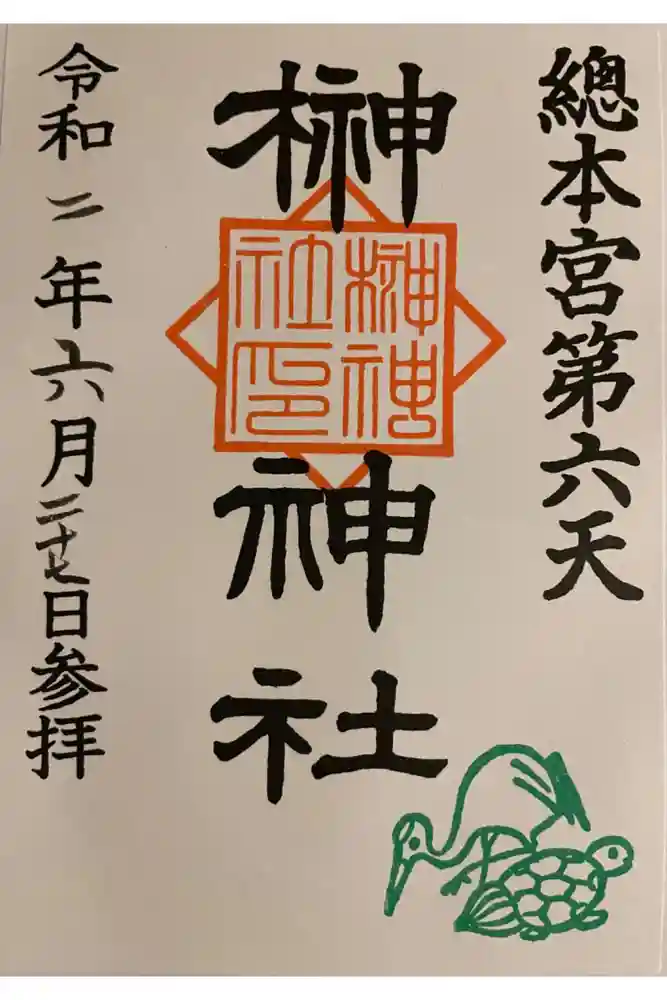 總本宮第六天
榊神社
榊神
社印
令和二年六月二十七日参拝